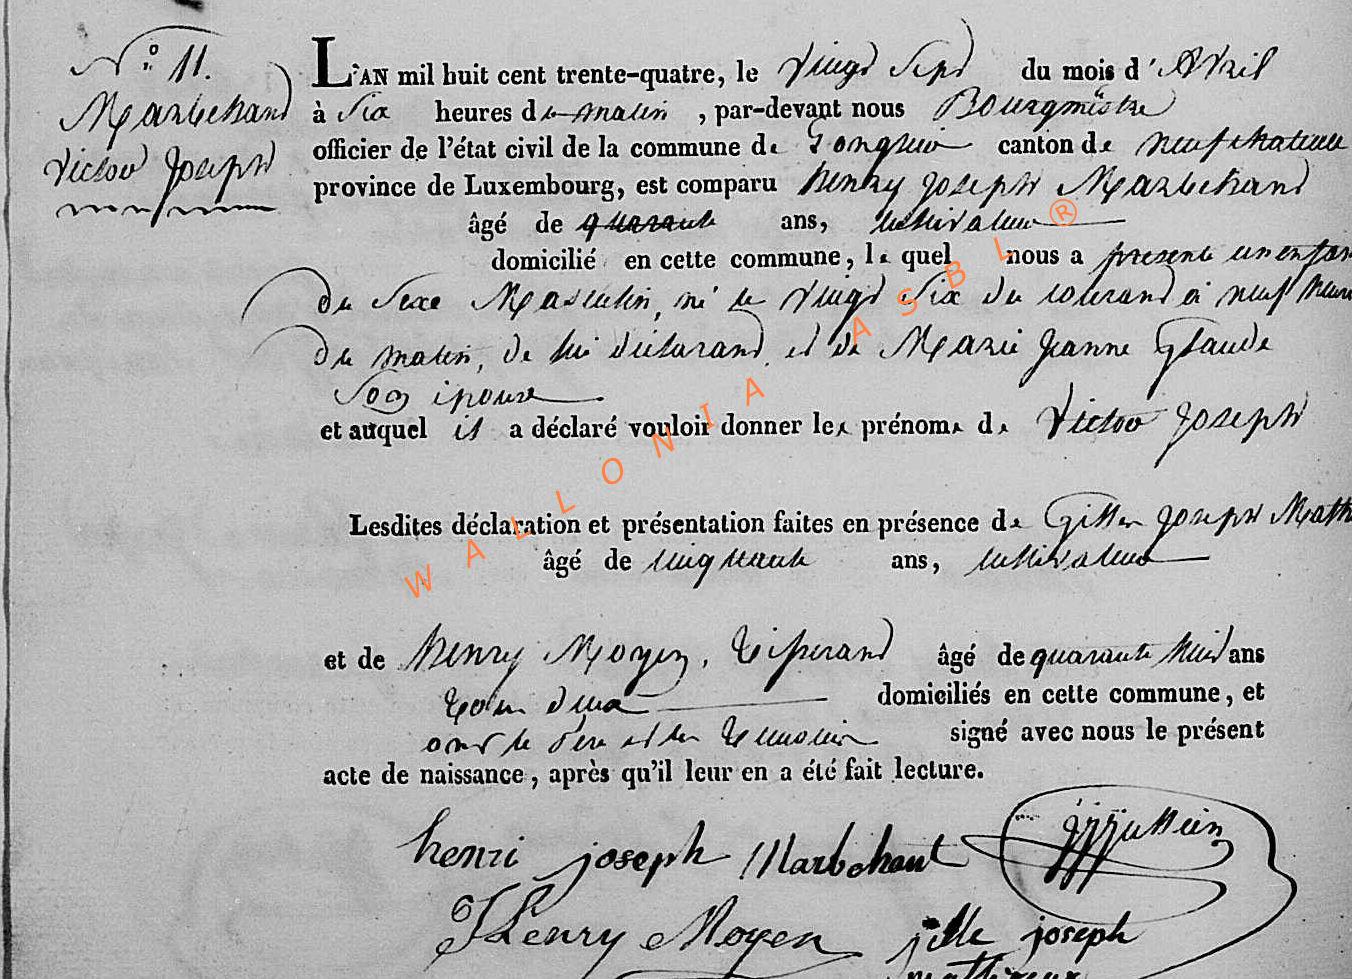 N° 11.
Marbehand
Victor Joseph
L'AN mil huit cent trente-quatre, le Vingt Sept du mois d'Avril
à Six heures de matin, par-devant nous Bourgmestre
officier de l'état civil de la commune de canton de neufchateau
province de Luxembourg, est comparu henry Joseph Marbehand
âgé de quarante ans, cultivateur
domicilié en cette commune, le quel nous a presenté un enfan
du Sexe Masculin, né le Vingt Six du courant à neuf heure
du matin, de lui déclarant et de Marie Jeanne Glaude
Son épouse
et auquel il a déclaré vouloir donner les prénoms de Victor Joseph
Lesdites déclaration et présentation faites en présence de Joseph Math
âgé de cinquante ans, cultivateur
et de henry Moyen, Tisserand âgé de quarante huit ans
Tous deux domiciliés en cette commune, et
ont le père et les Temoins signé avec nous le présent
acte de naissance, après qu'il leur en a été fait lecture.
henri joseph Marbehant
Henry Moyen jille joseph
WALLONIA ASBL ®